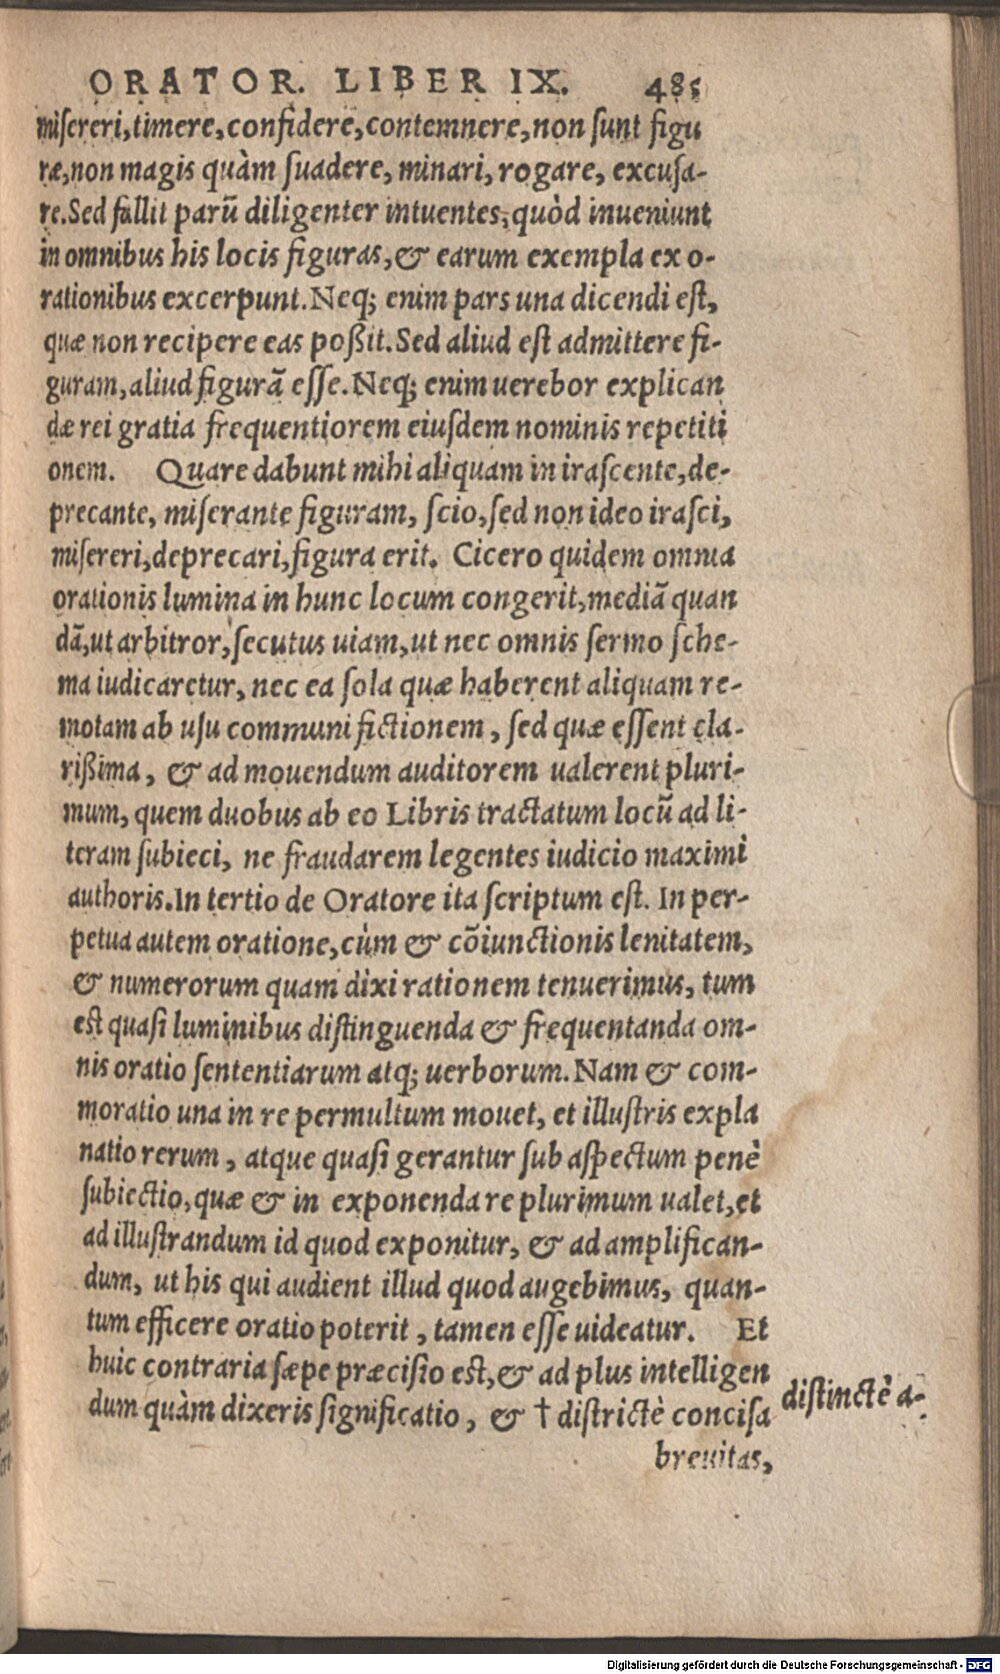 ORATOR. LIBER IX. 485
miſereri, timere, confidere, contemnere, non ſunt figu
ræ, non magis quàm ſuadere, minari, rogare, excuſa-
re. Sed fallit parũ diligenter intuentes, quòd inueniunt
in omnibus his locis figuras, & earum exempla ex o-
rationibus excerpunt. Neq; enim pars una dicendi eſt,
quæ non recipere eas poßit. Sed aliud eſt admittere fi-
guram, aliud figurã eſſe. Neq; enim uerebor explican
dæ rei gratia frequentiorem eiuſdem nominis repetiti
onem. Quare dabunt mihi aliquam in iraſcente, de-
precante, miſerante figuram, ſcio, ſed non ideo iraſci,
miſereri, deprecari, figura erit. Cicero quidem omnia
orationis lumina in hunc locum congerit, mediã quan
dã, ut arbitror, ſecutus uiam, ut nec omnis ſermo ſche-
ma iudicaretur, nec ea ſola quæ haberent aliquam re-
motam ab uſu communi fictionem, ſed quæ eſſent cla-
rißima, & ad mouendum auditorem ualerent pluri-
mum, quem duobus ab eo Libris tractatum locũ ad li-
teram ſubieci, ne fraudarem legentes iudicio maximi
authoris. In tertio de Oratore ita ſcriptum eſt. In per-
petua autem oratione, cùm & cõiunctionis lenitatem,
& numerorum quam dixi rationem tenuerimus, tum
est quaſi luminibus diſtinguenda & frequentanda om-
nis oratio ſententiarum atq; uerborum. Nam & com-
moratio una in re permultum mouet, et illuſtris expla
natio rerum, atque quaſi gerantur ſub aſpectum penè
ſubiectio, quæ & in exponenda re plurimum ualet, et
ad illuſtrandum id quod exponitur, & ad amplifican-
dum, ut his qui audient illud quod augebimus, quan-
tum efficere oratio poterit, tamen eſſe uideatur. Et
huic contraria ſæpe præciſio est, & ad plus intelligen
dum quàm dixeris ſignificatio, & † diſtrictè conciſa
diſtinctè a-
breuitas,
Digitalisierung gefördert durch die Deutsche Forschungsgemeinschaft - DFG